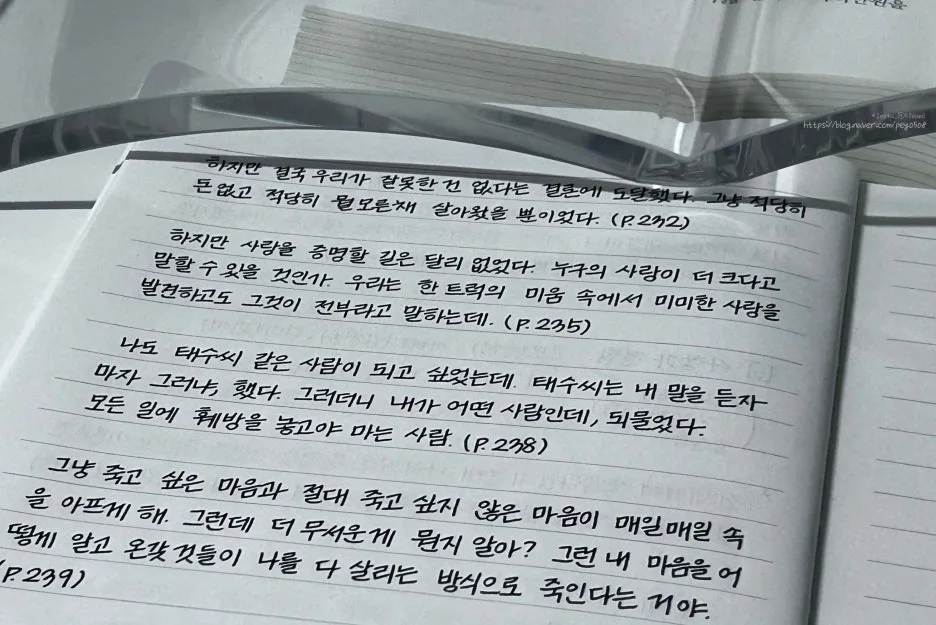 https://blog.naver.com/peg0508
하지만 결국 우리가 잘못한 건 없다는 결론에 도달했다. 그냥 적당히
돈 없고 적당히 뭘 모른 채 살아왔을 뿐이었다. (P.232)
하지만 사랑을 증명할 길은 달리 없었다. 누구의 사랑이 더 크다고
말할 수 있을 것인가. 우리는 한 트럭의 미움 속에서 미미한 사랑을
발견하고도 그것이 전부라고 말하는데. (P.235)
나도 태수씨 같은 사람이 되고 싶었는데. 태수씨는 내 말을 듣자
마자 그러냐, 했다. 그러더니 내가 어떤 사람인데, 되물었다.
모든 일에 훼방을 놓고야 마는 사람. (P.238)
그냥 죽고 싶은 마음과 절대 죽고 싶지 않은 마음이 매일매일 속
을 아프게 해. 그런데 더 무서운 게 뭔지 알아? 그런 내 마음을 어
떻게 알고 온갖 것들이 나를 다 살리는 방식으로 죽인다는 거야.
(P.239)